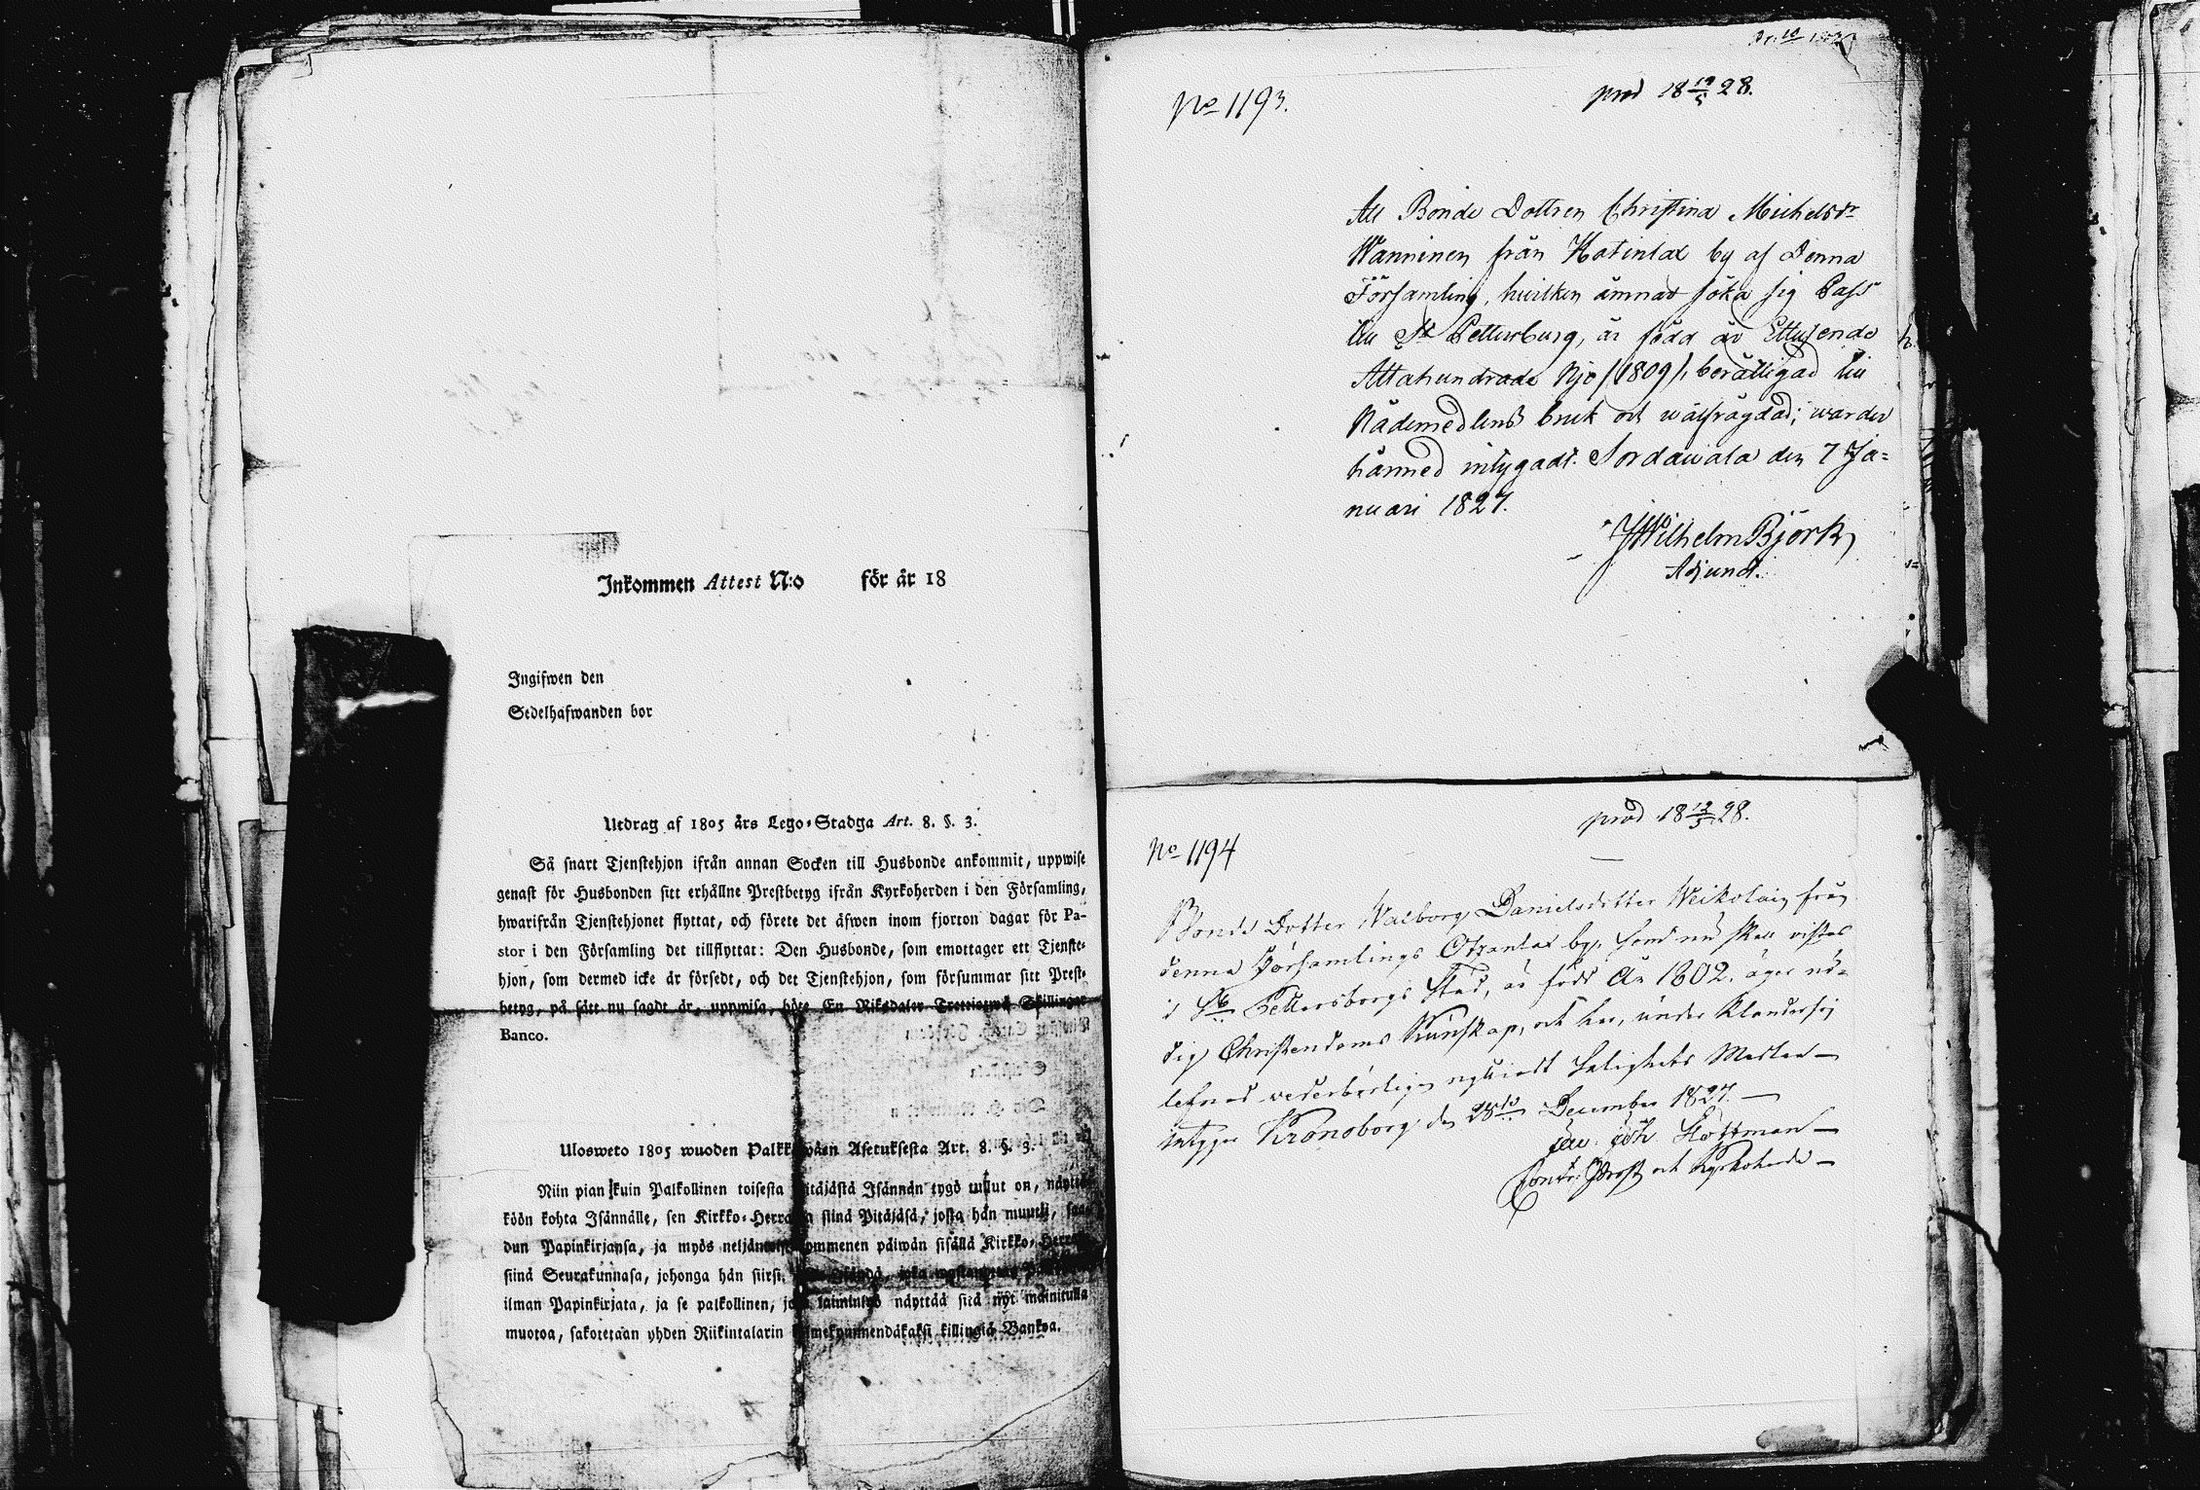 Inkommen Attest N:o för år 18
Ingifwen den
Sedelhafwanden bor
Utdrag af 1805 års Lego-Stadga Art. 8. §. 3.
Så snart Tjenstehjon ifrån annan Socken till Husbonde ankommit, uppwise
genast för Husbonden sitt erhållne Prestbetyg ifrån Kyrkoherden i den Församling,
hwarifrån Tjenstehjonet flyttat, och förete det äfwen inom fjorton dagar för Pa-
stor i den Församling det tillflyttat: Den Husbonde, som emottager ett Tjenste-
hjon, som dermed icke är försedt, och det Tjenstehjon, som försummar sitt Prest-
betyg, på sätt nu sagdt är, uppwisa, böte En Riksdaler Trettiotwå Skillingar
Banco.
Ulosweto 1805 wuoden Palkkawäen Asetuksesta Art. 8. §. 3.
Niin pian kuin Palkollinen toisesta Pitäjästä Isännän tygö tullut on, näyttä-
köön kohta Isännälle, sen Kirkko-Herralta siinä Pitäjäsä, josta hän muutti, saa-
dun Papinkirjansa, ja myös neljäntoistkymmenen päiwän sisällä Kirkko-Herralle
siinä Seurakunnasa, johonga hän siirsi;
ilman Papinkirjata, ja se palkollinen, joka laiminlyö näyttää sitä nyt mainitulla
muotoa, sakotetaan yhden Riikintalarin kolmekymmendäkaksi killingiä Bankoa.
No 1193.
prod 18 19/5 28.
Att Bonde Dottren Christina Michelsdr
Wanninen från Hatinlax by af Denna
Församling, hvilken ämnar söka sig Pass
till St Petterburg, är född år Ettusende
Åttahundrade Njo /1809/, berättigad till
Nådemedlens bruk och wälfrägdad; warder
härmed intygadt. Sordawala den 7 Ja-
nuari 1827.
JWilhelm Björk,
Adjunct.
prod 18 19/5 28.
No 1194
Bonde Dotter Walborg Danielsdotter Weikolain från
denna Församlings Otsanlax by, som nu skall vistas
i St Pettersborgs Stad, är född År 1802. äger nö-
dig Christendoms Kunskap, och har, under Klanderfrij
lefnad vederbörligen nyttjadt Salighets Medlen
intygar Kronoborg den 28de December 1827.
Contr. Prost och Kyrkoherde